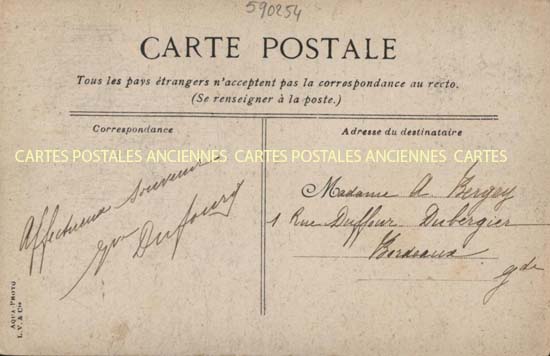 590254
CARTE POSTALE
Tous les pays étrangers n'acceptent pas la correspondance au recto.
(Se renseigner à la poste.)
Correspondance
Affectueux souvenir
Dufourg
Adresse du destinataire
Madame A Bergey
1 Rue Duffour Dubergier
Bordeaux
Gde
CARTES POSTALES ANCIENNES CARTES POSTALES ANCIENNES CARTES
AQUA PHOTO
L. V. & Cie